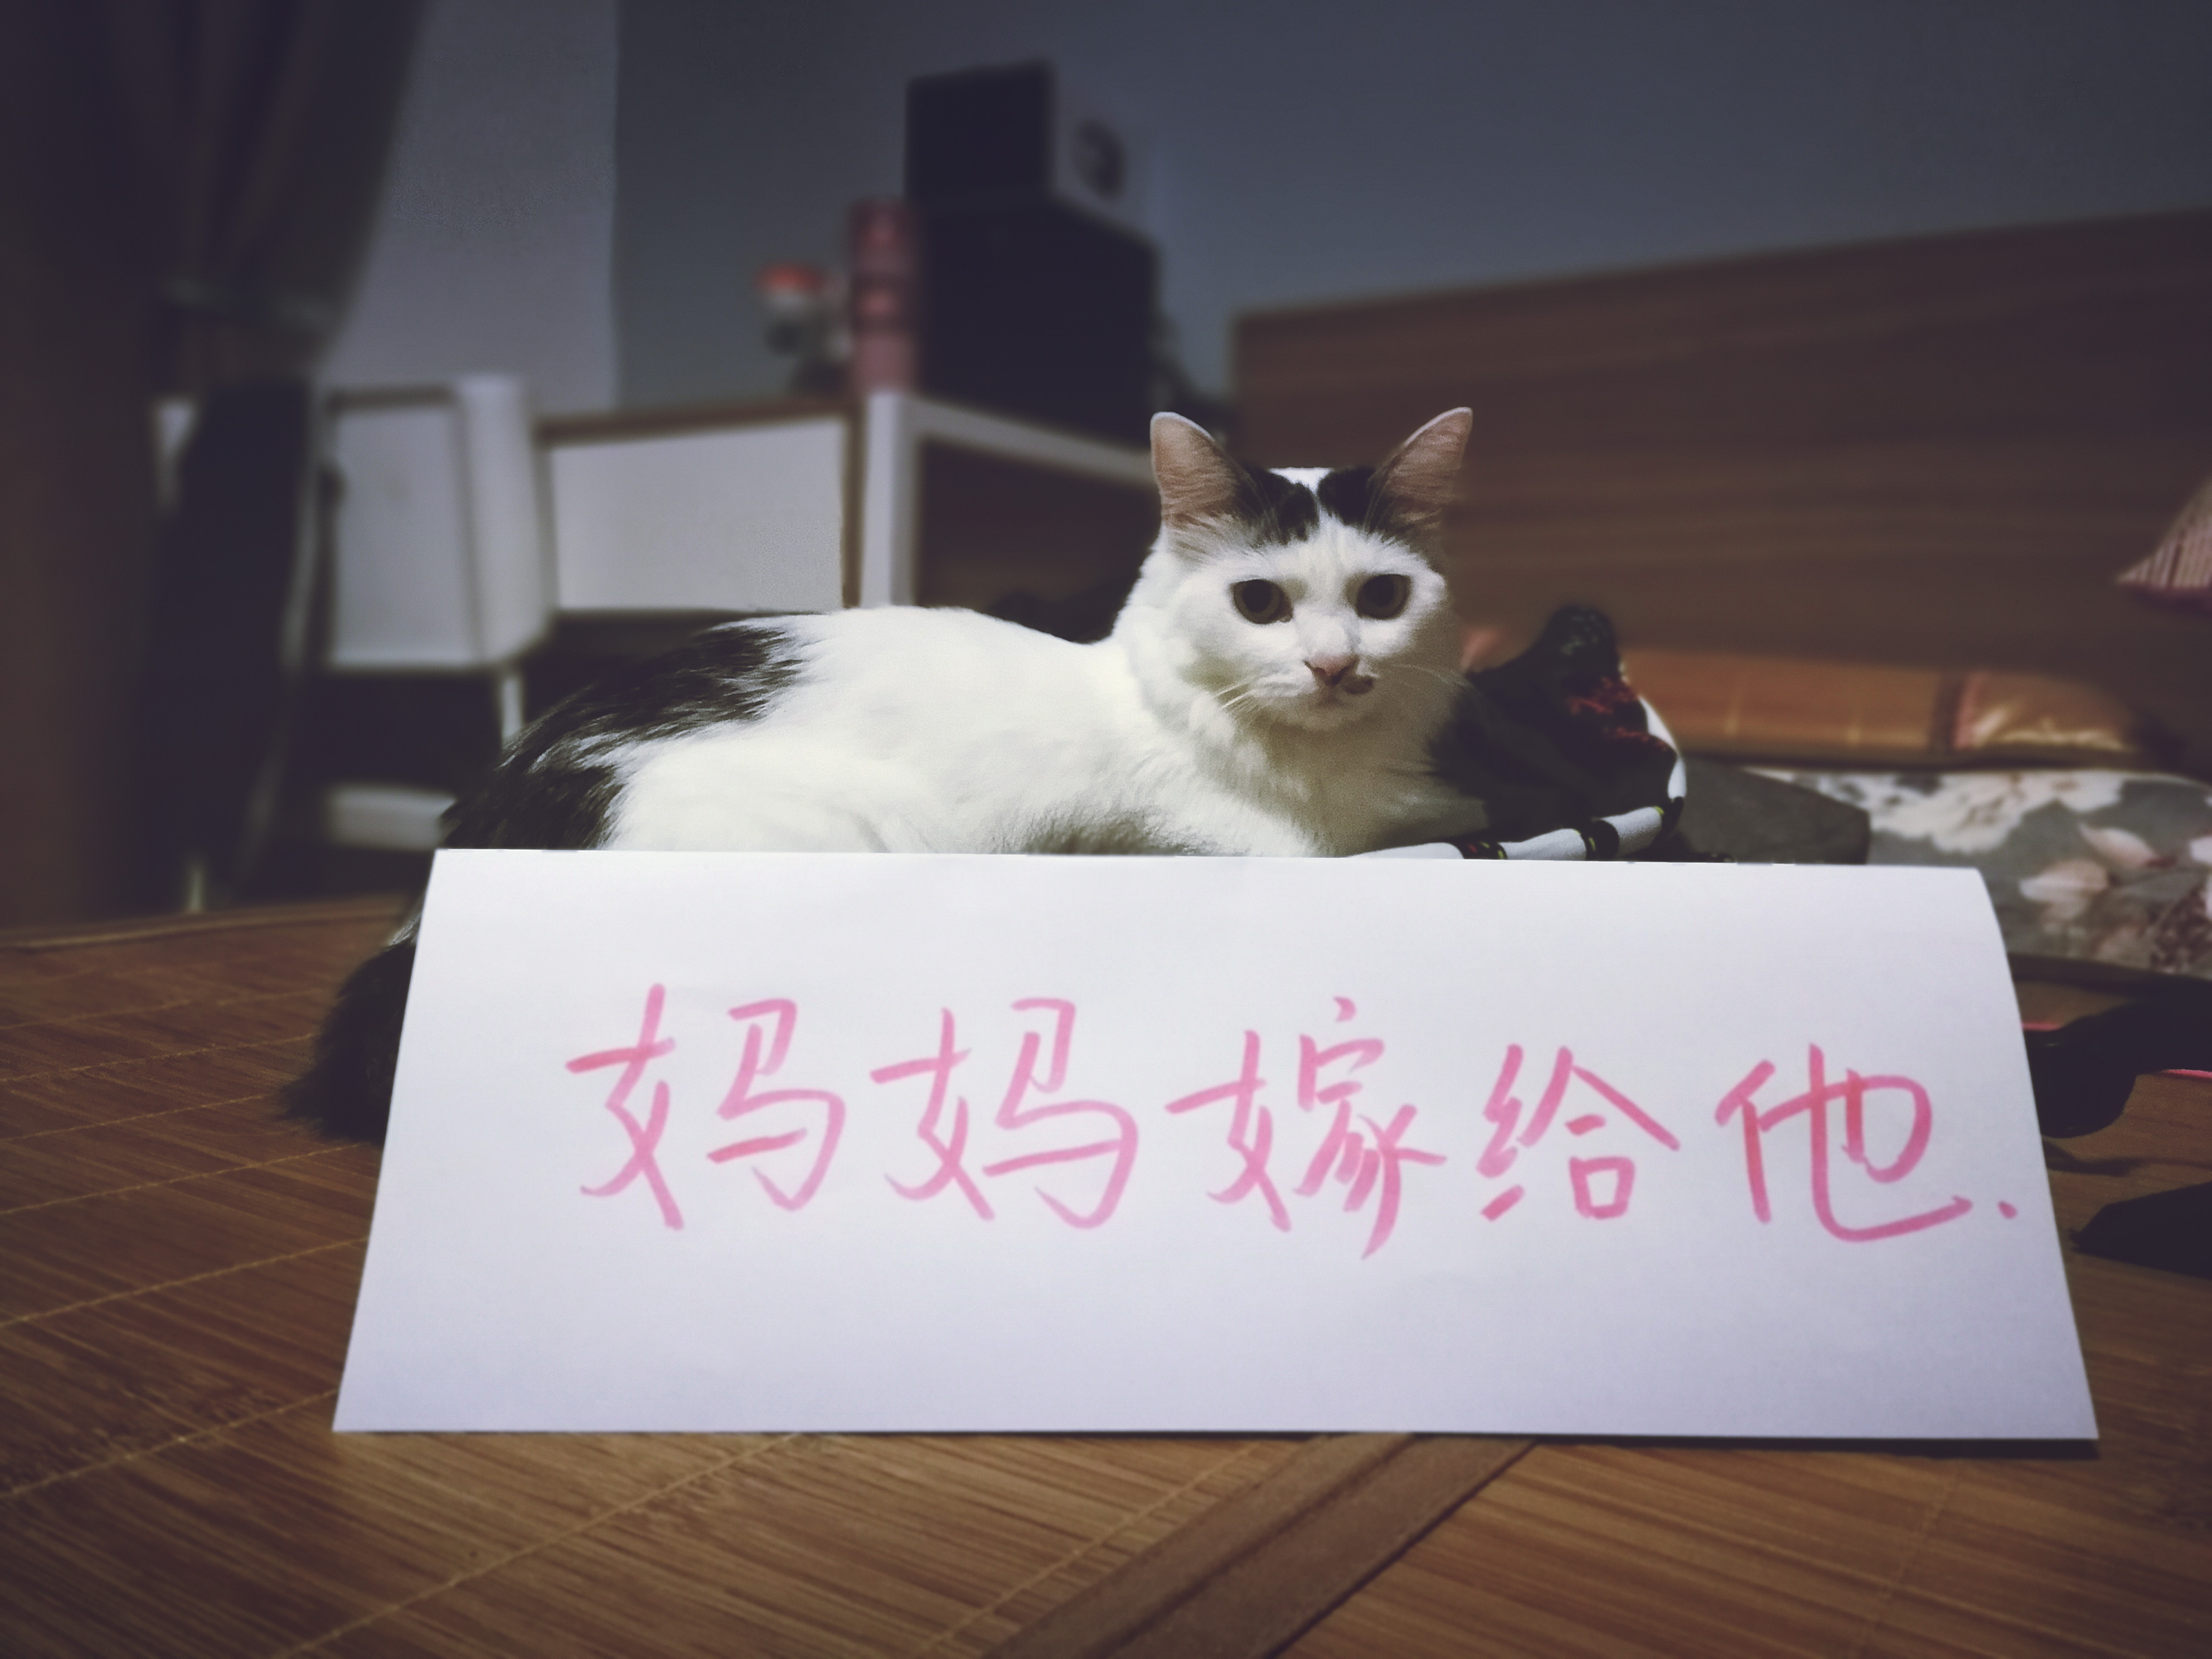 妈妈嫁给他.